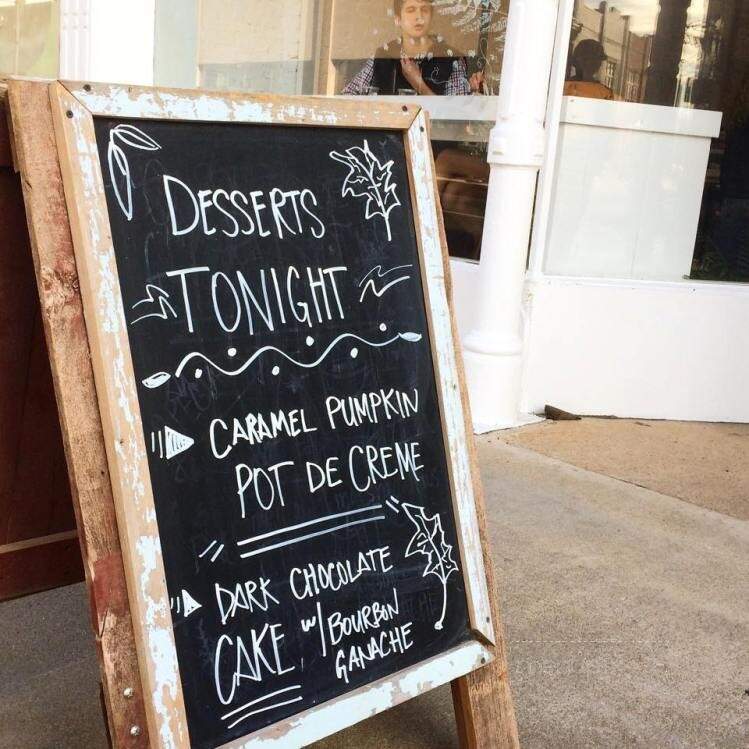 DESSERTS
TONIGHT
CARAMEL PUMPKIN
POT DE CREME
DARK CHOCOLATE
CAKE w/ BOURBON
GANACHE